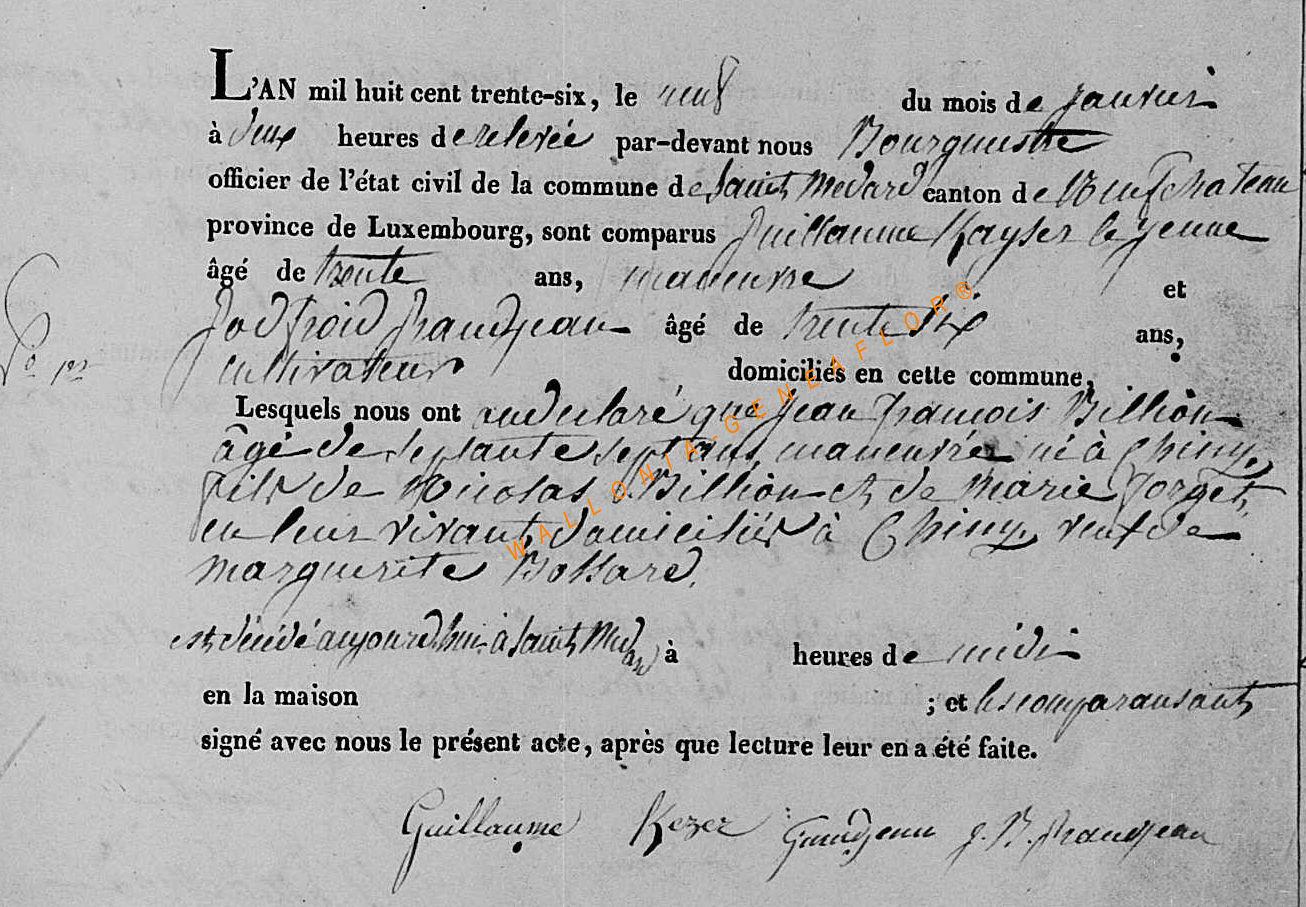 L'AN mil huit cent trente-six, le neuf du mois de janvier
à deux heures de relevée par-devant nous Bourguestre
officier de l'état civil de la commune de Saint Medard canton de Neufchateau
province de Luxembourg, sont comparus Guillaume Kayser le jeune
âgé de trente ans, maneuvre et
Godfroid Grandjean âgé de trente six ans,
cultivateur domiciliés en cette commune,
Lesquels nous ont declaré que Jean François Billion
âgé de septante sept ans maneuvre né à Chiny,
fils de Nicolas Billion et de Marie Jorget,
en leur vivant domiciliés à Chiny, veuf de
Marguerite Bossard.
est décédé aujourd'hui à Saint Medard à heures de midi
en la maison ; et les comparans ont
signé avec nous le présent acte, après que lecture leur en a été faite.
Guillaume Kezer Grandjean J. B. Grandjean
WALLONIA-GENEAFLOR®